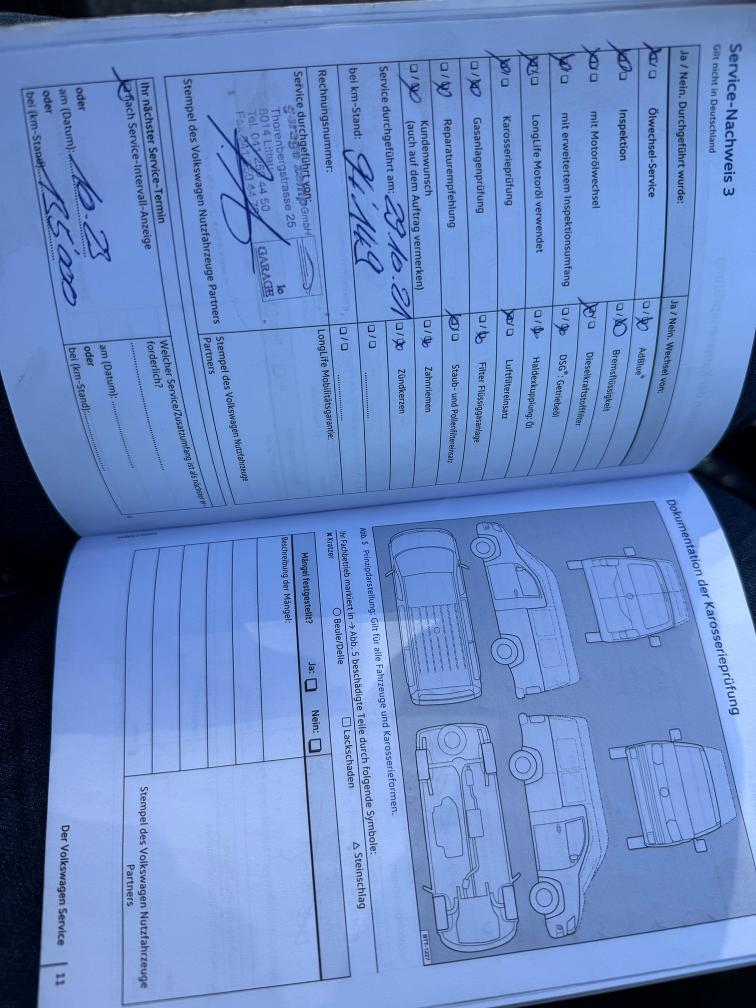 Service-Nachweis 3
Gilt nicht in Deutschland
Ja / Nein. Durchgeführt wurde:
Ölwechsel-Service
Inspektion
mit Motorölwechsel
mit erweitertem Inspektionsumfang
LongLife Motoröl verwendet
Karosserieprüfung
Gasanlagenprüfung
Reparaturempfehlung
Kundenwunsch
(auch auf dem Auftrag vermerken)
Service durchgeführt am: 29.10.21
bei km-Stand: 94'149
Rechnungsnummer:
Service durchgeführt von:
GmbH
Thorenbergstrasse 25
6014 Littau
Tel. 041 250 44 50
GARAGE
Stempel des Volkswagen Nutzfahrzeuge Partners
Ja / Nein. Wechsel von:
AdBlue®
Bremsflüssigkeit
Dieselkraftstofffilter
DSG®: Getriebeöl
Haldexkupplung: Öl
Luftfiltereinsatz
Filter Flüssiggasanlage
Staub- und Pollenfiltereinsatz
Zahnriemen
Zündkerzen
LongLife Mobilitätsgarantie:
Stempel des Volkswagen Nutzfahrzeuge
Partners
Ihr nächster Service-Termin
nach Service-Intervall-Anzeige
oder
am (Datum): 10.23
oder
bei (km-Stand):
Welcher Service/Zusatzumfang ist als nächster er-
forderlich?
am (Datum):
oder
bei (km-Stand):
Dokumentation der Karosserieprüfung
B7T-1227
Abb. 5 Prinzipdarstellung: Gilt für alle Fahrzeuge und Karosserieformen.
Ihr Fachbetrieb markiert in → Abb. 5 beschädigte Teile durch folgende Symbole:
x Kratzer
○ Beule/Delle
□ Lackschaden
△ Steinschlag
Mängel festgestellt?
Ja:
Nein:
Beschreibung der Mängel:
Stempel des Volkswagen Nutzfahrzeuge
Partners
Der Volkswagen Service
11